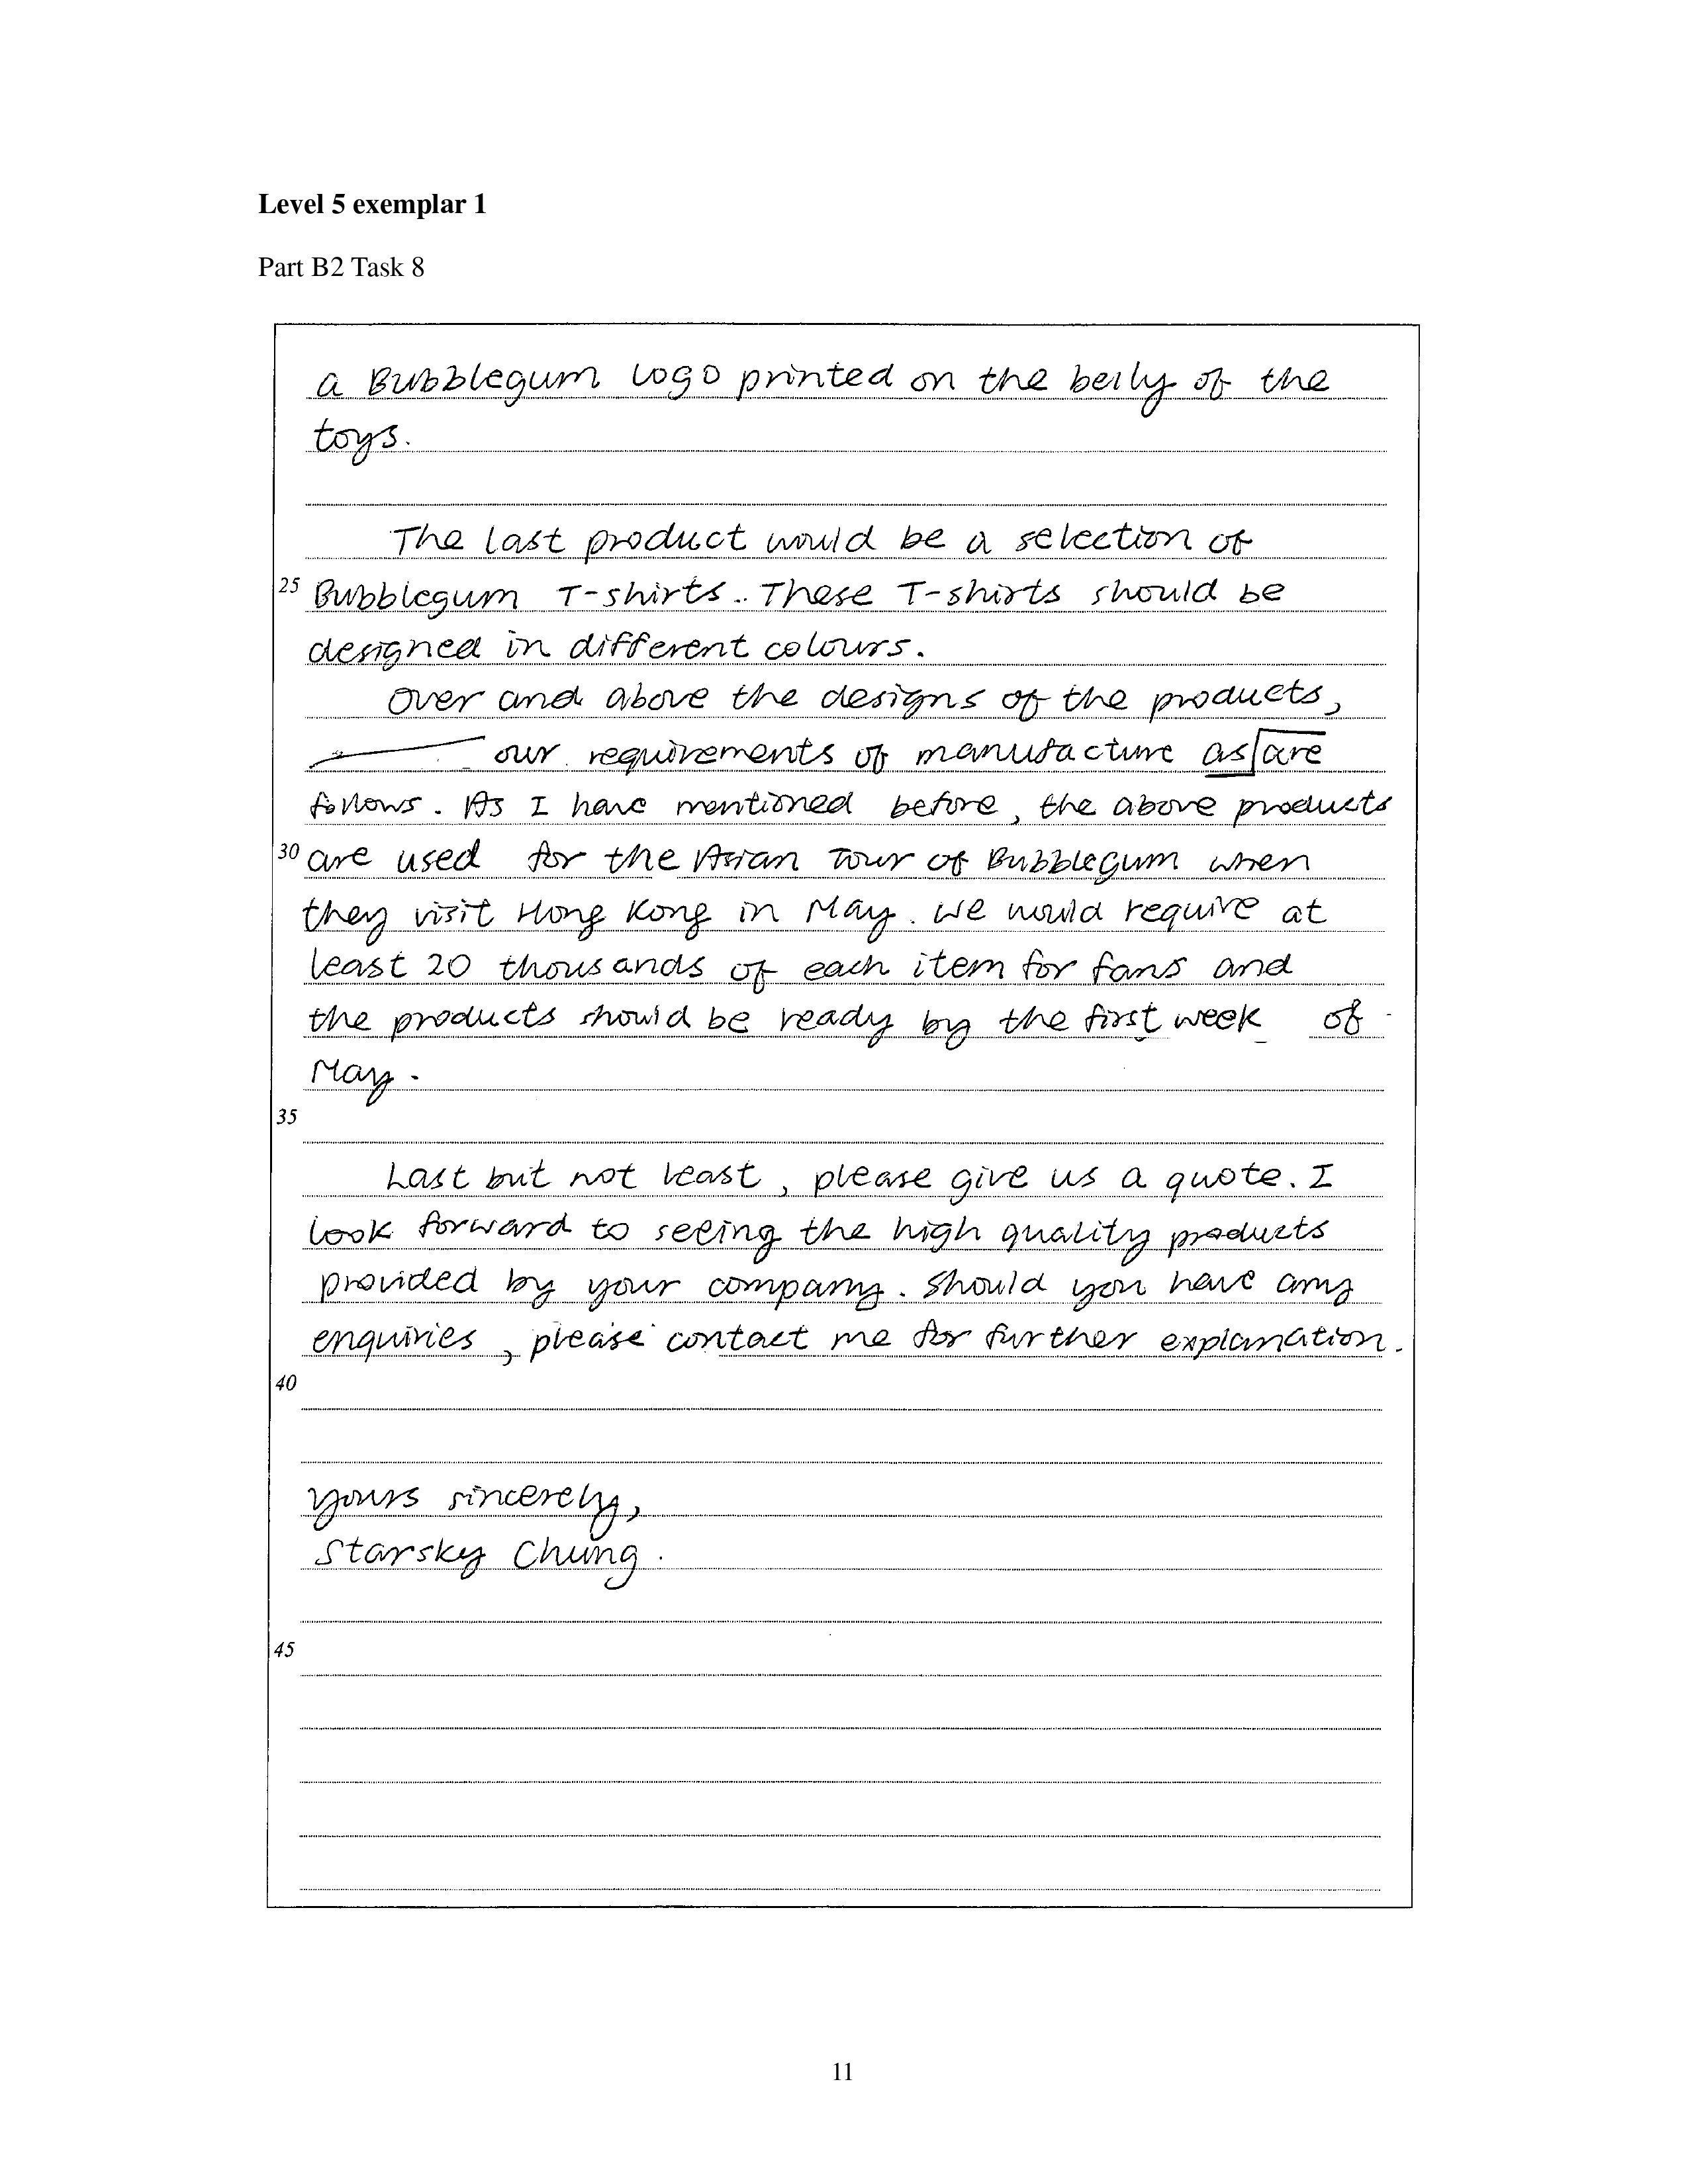 Level 5 exemplar 1
Part B2 Task 8
a Bubblegum logo printed on the belly of the
toys.
The last product would be a selection of
25 Bubblegum T-shirts. These T-shirts should be
designed in different colours.
Over and above the designs of the products,
our requirements of manufacture as are
follows. As I have mentioned before, the above products
30 are used for the Asian Tour of Bubblegum when
they visit Hong Kong in May. We would require at
least 20 thousands of each item for fans and
the products should be ready by the first week of
May.
35
Last but not least, please give us a quote. I
look forward to seeing the high quality products
provided by your company. Should you have any
enquiries, please contact me for further explanation.
40
Yours sincerely,
Starsky Chung.
45
11